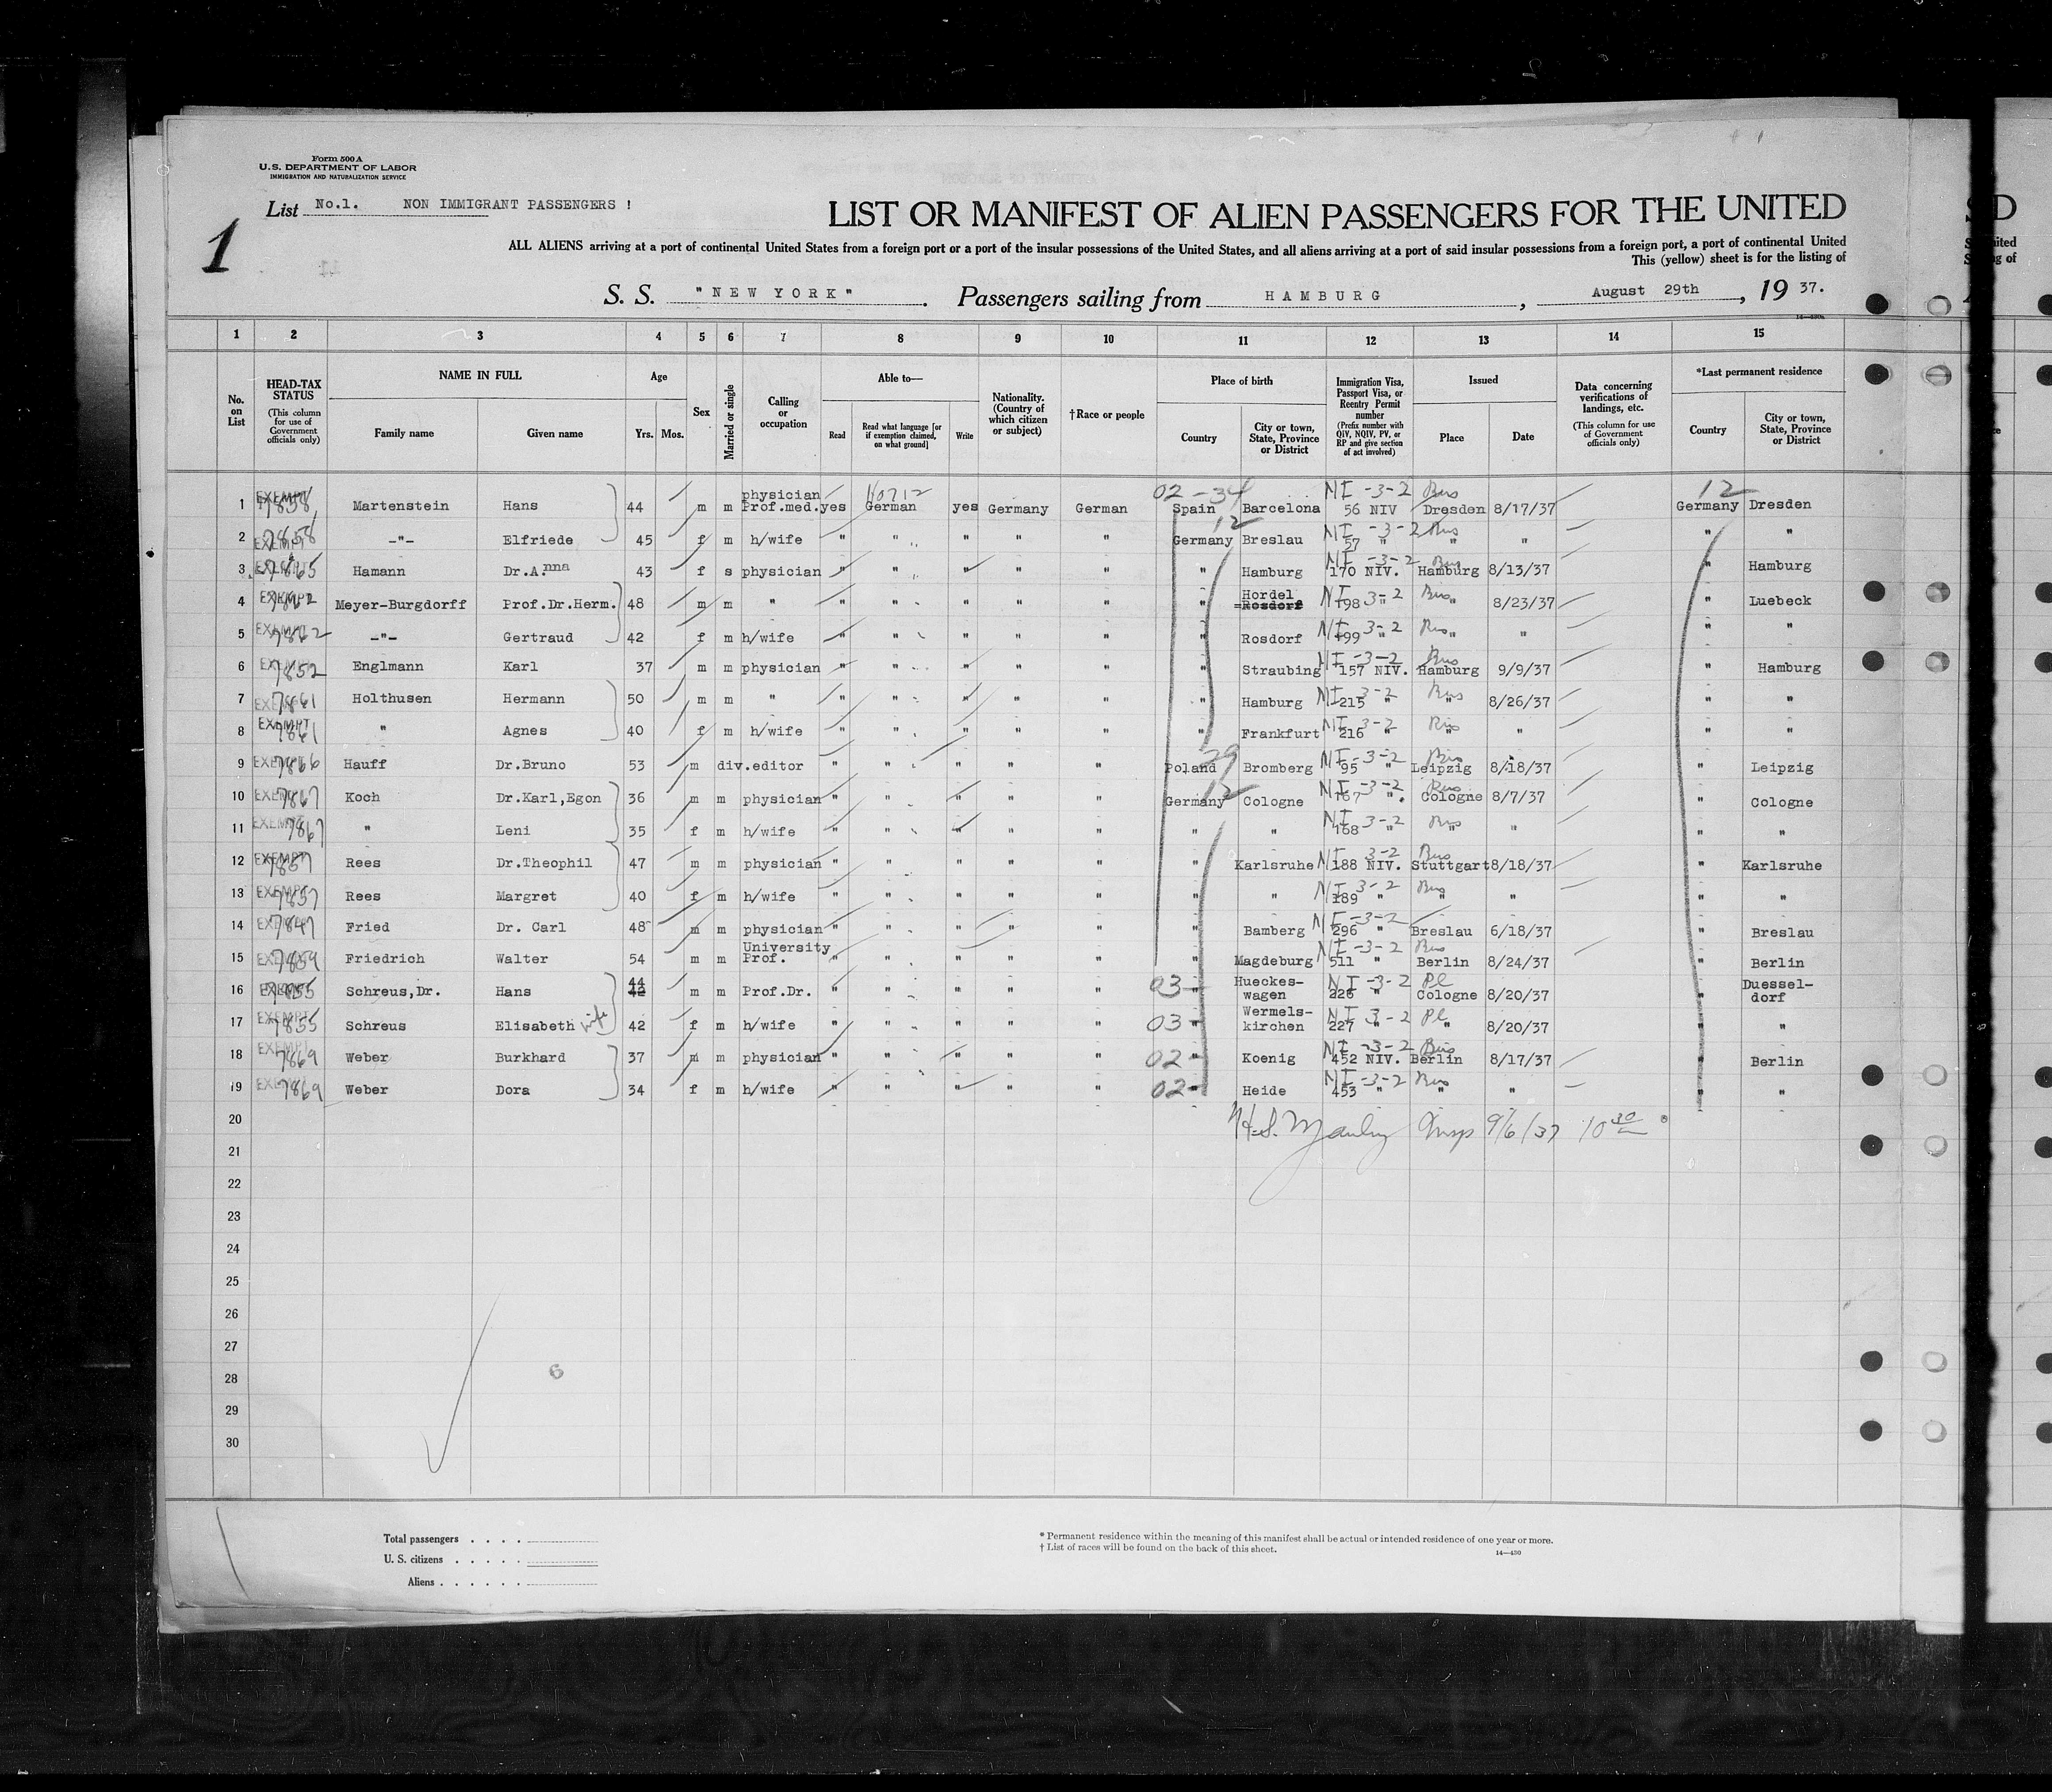 Form 500 A
U.S. DEPARTMENT OF LABOR
IMMIGRATION AND NATURALIZATION SERVICE
List No.1. NON IMMIGRANT PASSENGERS !
1
LIST OR MANIFEST OF ALIEN PASSENGERS FOR THE UNITED
ALL ALIENS arriving at a port of continental United States from a foreign port or a port of the insular possessions of the United States, and all aliens arriving at a port of said insular possessions from a foreign port, a port of continental United
This (yellow) sheet is for the listing of
S. S. "NEW YORK" . Passengers sailing from HAMBURG , August 29th , 19 37.
1 2 3 4 5 6 7 8 9 10 11 12 13 14 15
No. on List
HEAD-TAX STATUS (This column for use of Government officials only)
NAME IN FULL Family name Given name
Age Yrs. Mos.
Sex
Married or single
Calling or occupation
Able to— Read Read what language [or if exemption claimed, on what ground] Write
Nationality. (Country of which citizen or subject)
†Race or people
Place of birth Country City or town, State, Province or District
Immigration Visa, Passport Visa, or Reentry Permit number (Prefix number with QIV, NQIV, PV, or RP and give section of act involved)
Issued Place Date
Data concerning verifications of landings, etc. (This column for use of Government officials only)
*Last permanent residence Country City or town, State, Province or District
02-34 NI-3-2 12
1 EXEMPT 7858 Martenstein Hans 44 m m physician Prof.med. yes German yes Germany German Spain Barcelona 56 NIV Dresden 8/17/37 Germany Dresden
2 EXEMPT 7858 -"- Elfriede 45 f m h/wife " " " " " 12 Germany Breslau NI-3-2 57 " " " " "
3 EXEMPT 7865 Hamann Dr.Anna 43 f s physician " " " " " " Hamburg NI-3-2 170 NIV. Hamburg 8/13/37 " Hamburg
4 EXEMPT Meyer-Burgdorff Prof.Dr.Herm. 48 m m " " " " " " " Hordel Rosdorf NI 3-2 198 " " 8/23/37 " Luebeck
5 EXEMPT 7862 -"- Gertraud 42 f m h/wife " " " " " " Rosdorf NI 3-2 199 " " " " "
6 EXEMPT 7852 Englmann Karl 37 m m physician " " " " " " Straubing NI-3-2 157 NIV. Hamburg 9/9/37 " Hamburg
7 EXEMPT 7861 Holthusen Hermann 50 m m " " " " " " " Hamburg NI 3-2 215 " " 8/26/37 " "
8 EXEMPT 7861 " Agnes 40 f m h/wife " " " " " " Frankfurt NI 3-2 216 " " " " "
9 EXEMPT 7866 Hauff Dr.Bruno 53 m div. editor " " " " " 29 Poland Bromberg NI-3-2 95 " Leipzig 8/18/37 " Leipzig
10 EXEMPT 7867 Koch Dr.Karl,Egon 36 m m physician " " " " " 12 Germany Cologne NI-3-2 167 " Cologne 8/7/37 " Cologne
11 EXEMPT 7867 " Leni 35 f m h/wife " " " " " " " NI 3-2 168 " " " " "
12 EXEMPT 7857 Rees Dr.Theophil 47 m m physician " " " " " " Karlsruhe NI 3-2 188 NIV. Stuttgart 8/18/37 " Karlsruhe
13 EXEMPT 7857 Rees Margret 40 f m h/wife " " " " " " " NI 3-2 189 " " " " "
14 EXEMPT 7847 Fried Dr. Carl 48 m m physician " " " " " " Bamberg NI-3-2 296 " Breslau 6/18/37 " Breslau
15 EXEMPT 7859 Friedrich Walter 54 m m University Prof. " " " " " " Magdeburg NI-3-2 511 " Berlin 8/24/37 " Berlin
16 EXEMPT 7855 Schreus,Dr. Hans 44 42 m m Prof.Dr. " " " " " 03 " Hueckes- wagen NI-3-2 226 " Pl Cologne 8/20/37 " Duessel- dorf
17 EXEMPT 7855 Schreus Elisabeth wife 42 f m h/wife " " " " " 03 " Wermels- kirchen NI 3-2 227 " Pl " 8/20/37 " "
18 EXEMPT 7869 Weber Burkhard 37 m m physician " " " " " 02 " Koenig NI-3-2 452 NIV. Berlin 8/17/37 " Berlin
19 EXEMPT 7869 Weber Dora 34 f m h/wife " " " " " 02 " Heide NI-3-2 453 " " " " "
20 Insp 9/6/37 10 30
21
22
23
24
25
26
27
28 6
29
30
Total passengers . . . .
U. S. citizens . . . . .
Aliens . . . . . .
* Permanent residence within the meaning of this manifest shall be actual or intended residence of one year or more.
† List of races will be found on the back of this sheet.
14—430